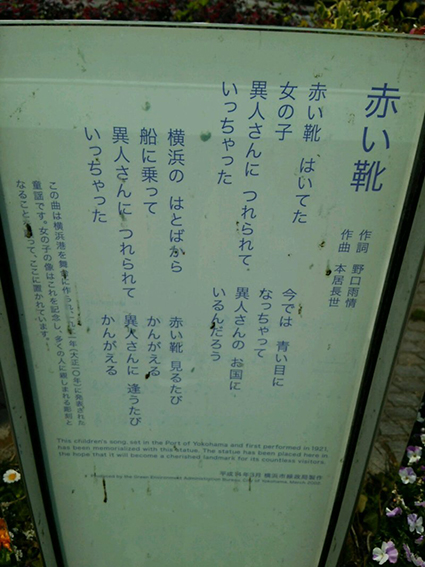 赤い靴
作詞 野口雨情
作曲 本居長世
赤い靴 はいてた
女の子
異人さんに つれられて
いっちゃった
横浜の はとばから
船に乗って
異人さんに つれられて
いっちゃった
今では 青い目に
なっちゃって
異人さんの お国に
いるんだろう
赤い靴 見るたび
かんがえる
異人さんに 逢うたび
かんがえる
この曲は横浜港を舞台に作られ、一九二一年(大正一〇年)に発表された
童謡です。女の子の像はこれを記念し、多くの人に親しまれる彫刻と
なることを願って、ここに置かれています。
This children's song, set in the Port of Yokohama and first performed in 1921,
has been memorialised with this statue. The statue has been placed here in
the hope that it will become a cherished landmark for its countless visitors.
平成 年3月 横浜市緑政局製作
by the Green Environment Administration Bureau, City of Yokohama, March